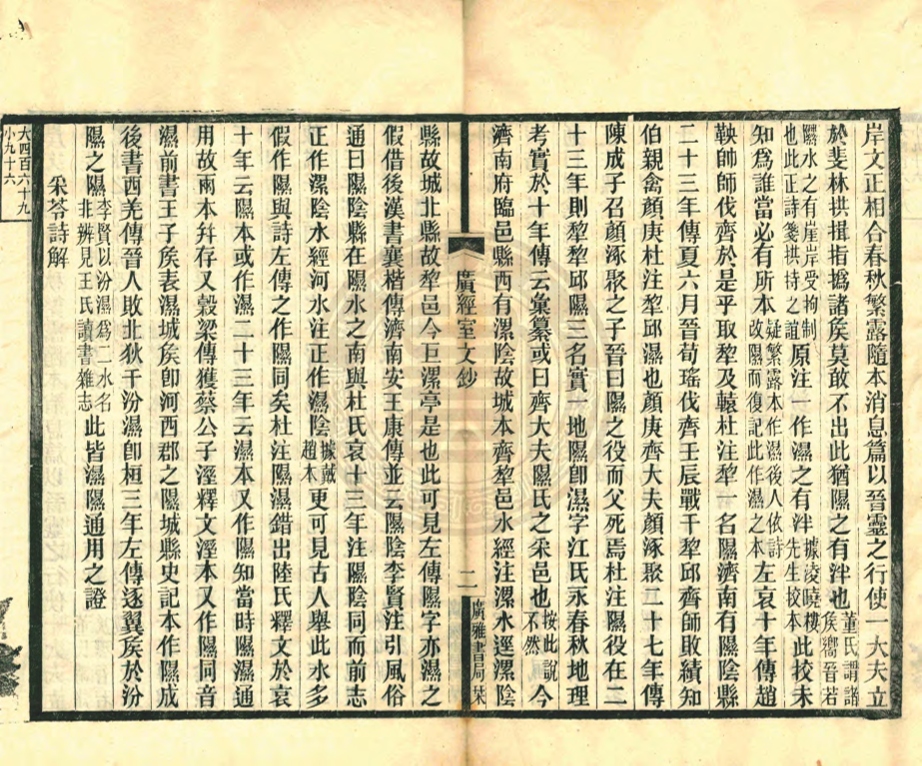 岸文正相合春秋繁露隨本消息篇以晉靈之行使一大夫立
於斐林拱揖指撝諸矦莫敢不出此猶隰之有泮也董氏謂諸矦嚮晉若
隰水之有崖岸受拘制也此正詩箋拱持之誼原注一作濕之有泮據淩曉樓先生校本此校未
知爲誰當必有所本疑繁露本作濕後人依詩改隰而復記此作濕之本左哀十年傳趙
鞅帥師伐齊於是乎取犂及轅杜注犂一名隰濟南有隰陰縣
二十三年傳夏六月晉荀瑤伐齊壬辰戰于犂邱齊師敗績知
伯親禽顔庚杜注犂邱濕也顔庚齊大夫顔涿聚二十七年傳
陳成子召顔涿聚之子晉曰隰之役而父死焉杜注隰役在二
十三年則犂犂邱隰三名實一地隰卽濕字江氏永春秋地理
考實於十年傳云彙纂或曰齊大夫隰氏之采邑也按此說不然今
濟南府臨邑縣西有漯陰故城本齊犂邑水經注漯水逕漯陰
廣經室文鈔
二
廣雅書局栞
縣故城北縣故犂邑今巨漯亭是也此可見左傳隰字亦濕之
假借後漢書襄楷傳濟南安王康傳並云隰陰李賢注引風俗
通曰隰陰縣在隰水之南與杜氏哀十三年注隰陰同而前志
正作漯陰水經河水注正作濕陰據戴趙本更可見古人舉此水多
假作隰與詩左傳之作隰同矣杜注隰濕錯出陸氏釋文於哀
十年云隰本或作濕二十三年云濕本又作隰知當時隰濕
用故兩本幷存又穀梁傳獲蔡公子溼釋文溼本又作隰同音
濕前書王子矦表濕城矦卽河西郡之隰城縣史記本作隰成
後書西羌傳晉人敗北狄于汾濕卽桓三年左傳逐翼矦於汾
隰之隰李賢以汾濕爲二水名非辨見王氏讀書雜志此皆濕隰通用之證
采苓詩解
大四百六十九
小九十六